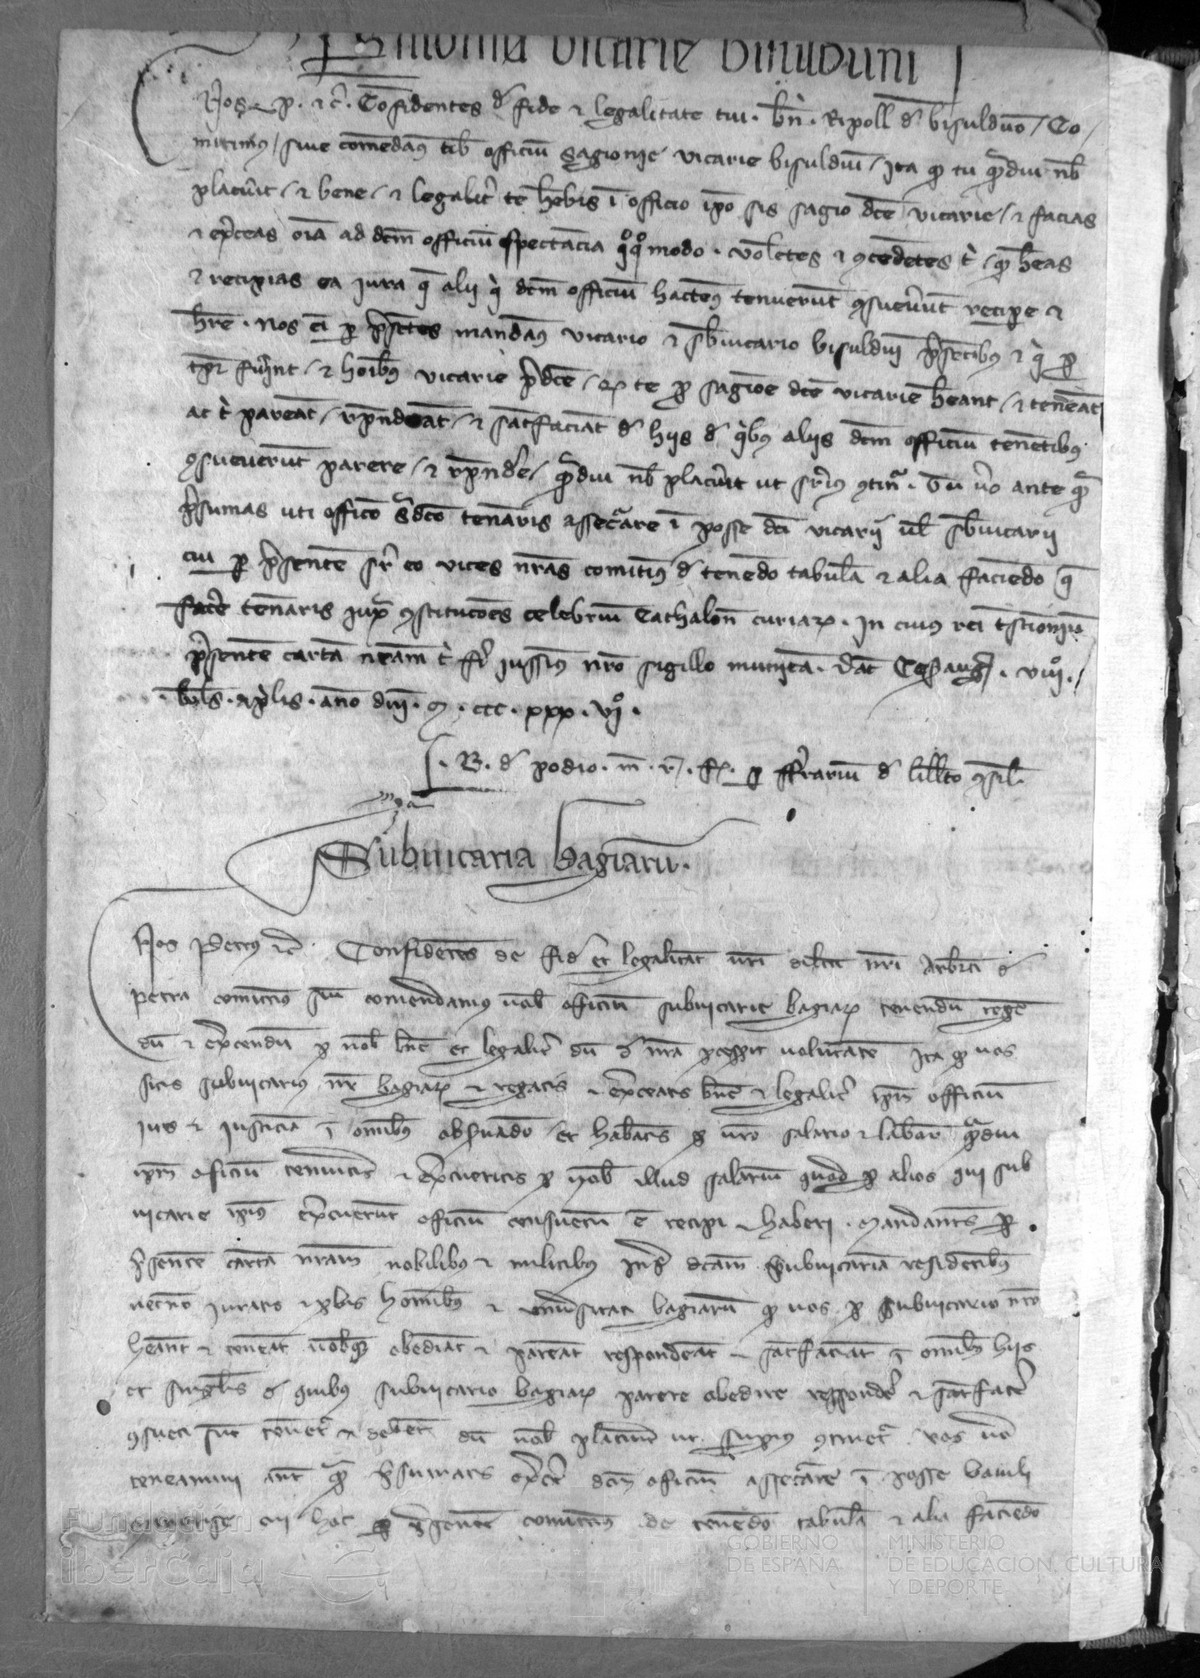 Sagionia vicarie bisulduni
Nos P. etc. Confidentes de fide et legalitate tui Bn. Ripoll de bisulduno Co
mitimus sive comendamus tibi officium sagionie vicarie bisulduni ita quod tu quamdiu nobis
placuerit et bene et legaliter te habebis in officio ipso sis sagio dicte vicarie et facias
et exerceas omnia ad dictum officium spectancia quoquomodo. volentes et concedentes tibi quod habeas
et recipias ea iura que alii qui dictum officium hactenus tenuerunt consueverunt recipere et
habere. nos enim per presentes mandamus vicario et subvicario bisulduni presentibus et qui pro
tempore fuerint et hominibus vicarie predicte quod te pro sagione dicte vicarie habeant et teneant
ac tibi pareant respondeant et satisfaciant de hiis de quibus aliis dictum officium tenentibus
consueverunt parere et respondere quamdiu nobis placuerit ut superius continetur. Tu vero ante quam
presumas uti officio predicto tenearis assecurare in posse dicti vicarii vel subvicarii
cui per presentem super eo vices nostras comitimus de tenendo tabulam et alia faciendo que
facere tenearis iuxta constituciones celebrium Cathalonie curiarum. In cuius rei testimonium
presentem cartam nostram tibi fieri iussimus nostro sigillo munitam. Dat Cesarauguste VIII
kalendas aprilis anno domini M CCC XXX VI
B. de podio m. r. f. per fferrarium de lilleto consil.
Subvicaria bagiarum.
Nos Petrus etc. Confidentes de fide et legalitate vestri dilecti nostri Arberti de
petra comitimus sive comendamus vobis officium subvicarie bagiarum tenendum regen
dum et exercendum per vobis bene et legaliter dum de nostra processerit voluntate Ita quod vos
sitis subvicarius noster bagiarum et regatis et exerceatis bene et legaliter ipsum officium
ius et iusticiam in omnibus observando et habeatis pro vestro salario et labore quamdiu
ipsum oficium tenueritis et exercueritis per vobis illud salarium quod per alios qui sub
vicarie ipsius exercuerunt oficium consuetum est recipi et haberi. Mandantes per
presentem cartam nostram nobilibus et militibus infra dictam subvicariam residentibus
necnon iuratis et probis hominibus et universitati bagiarum quod vos pro subvicario nostro
habeant et teneant vobisque obediant et pareant respondeant et satisfaciant in omnibus hiis
et singulis de quibus subvicario bagiarum parere obedire respondere et satisfacere
consueti sunt tenentur et debent dum nobis placuerit ut superius continetur vos vero
teneamini ante quam presumatis exercere dictum oficium assecurare in posse baiuli
cui hoc per presentem comitimus de tenendo tabulam et alia faciendo
Fundación
iberCaja
GOBIERNO
DE ESPAÑA
MINISTERIO
DE EDUCACIÓN, CULTURA
Y DEPORTE